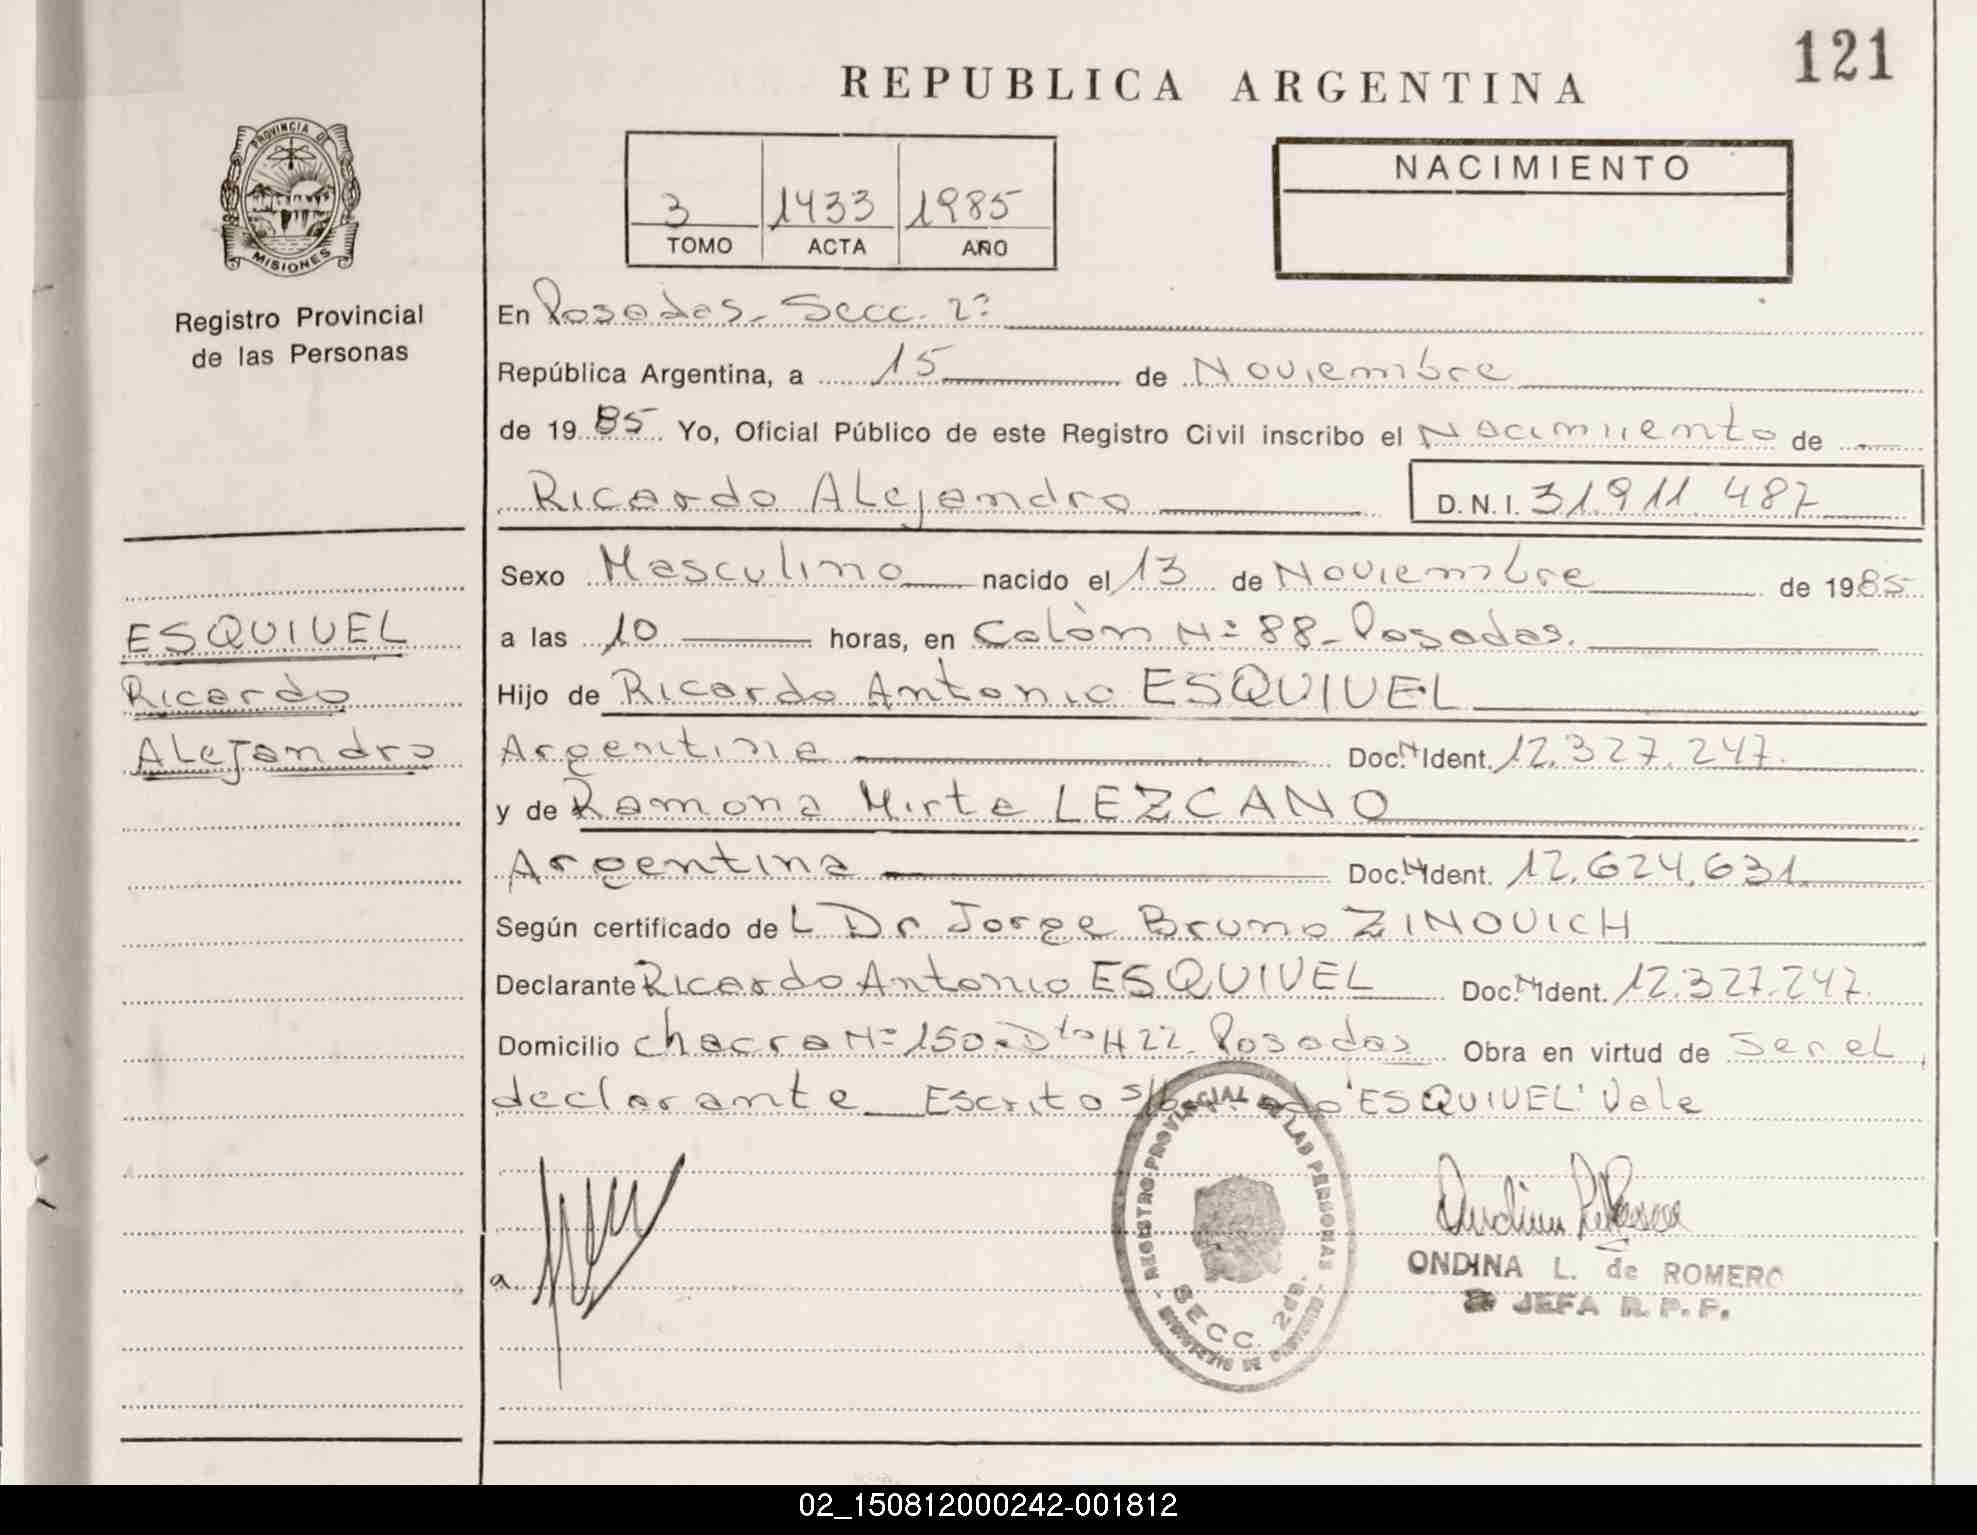 121
REPUBLICA ARGENTINA
PROVINCIA DE
MISIONES
Registro Provincial
de las Personas
3 1433 1985
TOMO ACTA AÑO
NACIMIENTO
En Posadas - Secc. 2ª
República Argentina, a 15 de Noviembre
de 1985 Yo, Oficial Público de este Registro Civil inscribo el Nacimiento de
Ricardo Alejandro D.N.I. 31.911.487
Sexo Masculino nacido el 13 de Noviembre de 1985
a las 10 horas, en Colòn Nº 88 - Posadas.
Hijo de Ricardo Antonio ESQUIVEL
Argentina Doc. N Ident. 12.327.247.
y de Ramona Mirta LEZCANO
Argentina Doc. N Ident. 12.624.631.
Según certificado de L Dr Jorge Bruno ZINOVICH
Declarante Ricardo Antonio ESQUIVEL Doc. N Ident. 12.327.247.
Domicilio chacra Nº 150 - Dto H 22 - Posadas Obra en virtud de ser el
declarante Escrito "ESQUIVEL" Vale
ESQUIVEL
Ricardo
Alejandro
REGISTRO PROVINCIAL DE LAS PERSONAS
SECC. 2da.
ONDINA L. de ROMERO
JEFA R. P. P.
02_150812000242-001812